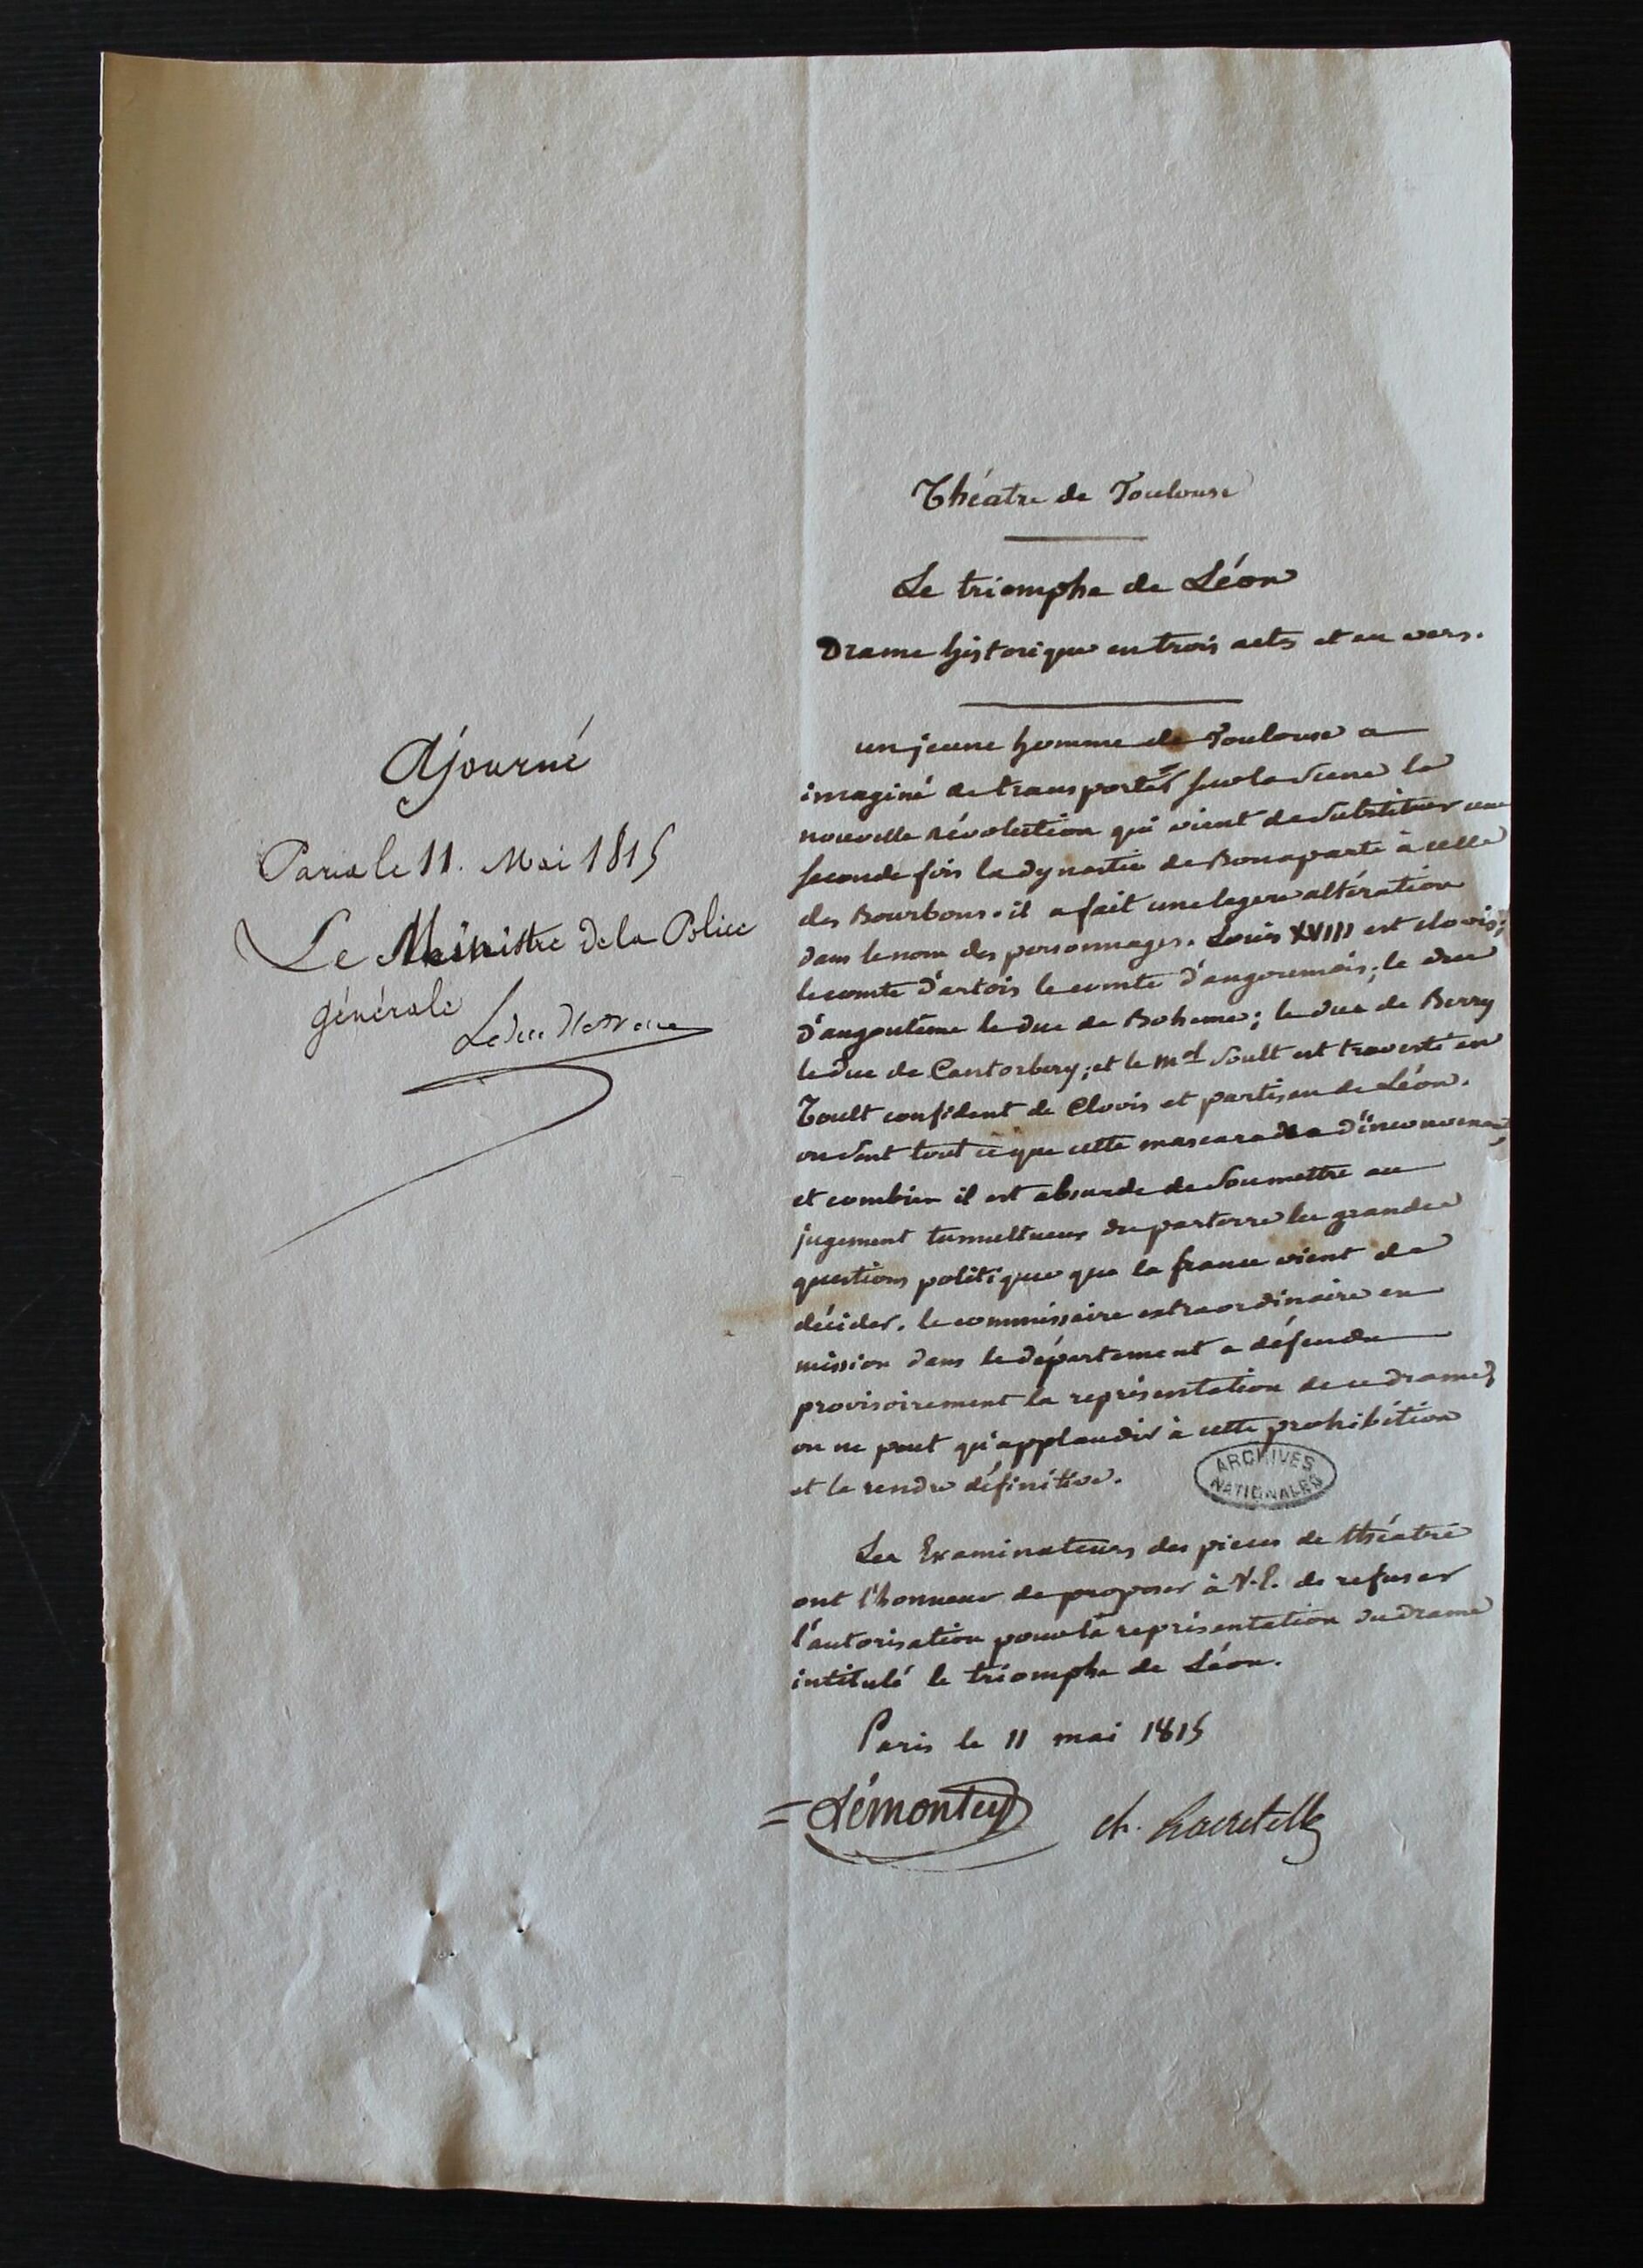 Théatre de Toulouse
Le triomphe de Léon
Drame historique en trois actes et en vers.
un jeune homme de Toulouse a
imaginé de transporter sur la scene la
nouvelle révolution qui vient de substituer une
seconde fois la dynastie de Bonaparte à celle
des Bourbons. il a fait une legere altération
dans le nom des personnages. Louis XVIII est clovis;
le comte d'artois le comte d'angoremois; le duc
d'angoulême le duc de Boheme; le duc de Berry
le duc de Cantorbery; et le Mal Soult est travesti en
Toult confident de Clovis et partisan de Léon.
on sent tout ce que cette mascarade a d'inconvenant,
et combien il est absurde de soumettre au
jugement tumultueux du parterre les grandes
questions politiques que la france vient de
décider. le commissaire extraordinaire en
mission dans le département a défendu
provisoirement la représentation de ce drame,
on ne peut qu'applaudir à cette prohibition
et la rendre définitive.
ARCHIVES
NATIONALES
Les Examinateurs des pieces de théatre
ont l'honneur de proposer à V.E. de refuser
l'autorisation pour la représentation du drame
intitulé le triomphe de Léon.
Paris le 11 mai 1815
Lémontey ch. Lacretelle
Ajourné
Paris le 11. Mai 1815
Le Ministre de la Police
générale
Le duc